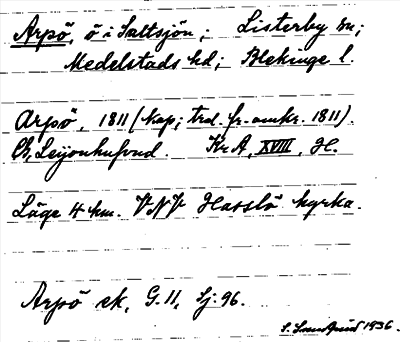 Arpö, ö i Saltsjön; Listerby sn;
Medelstads hd; Blekinge l.
Arpö, 1811 (kap; trol. fr. omkr. 1811).
Ch. Leijonhufvud. Kr. A, XVIII, H.
Läge 4 km. VNV Hasslö kyrka.
Arpö ek, G. 11, Sj. 96.
S. 1936.